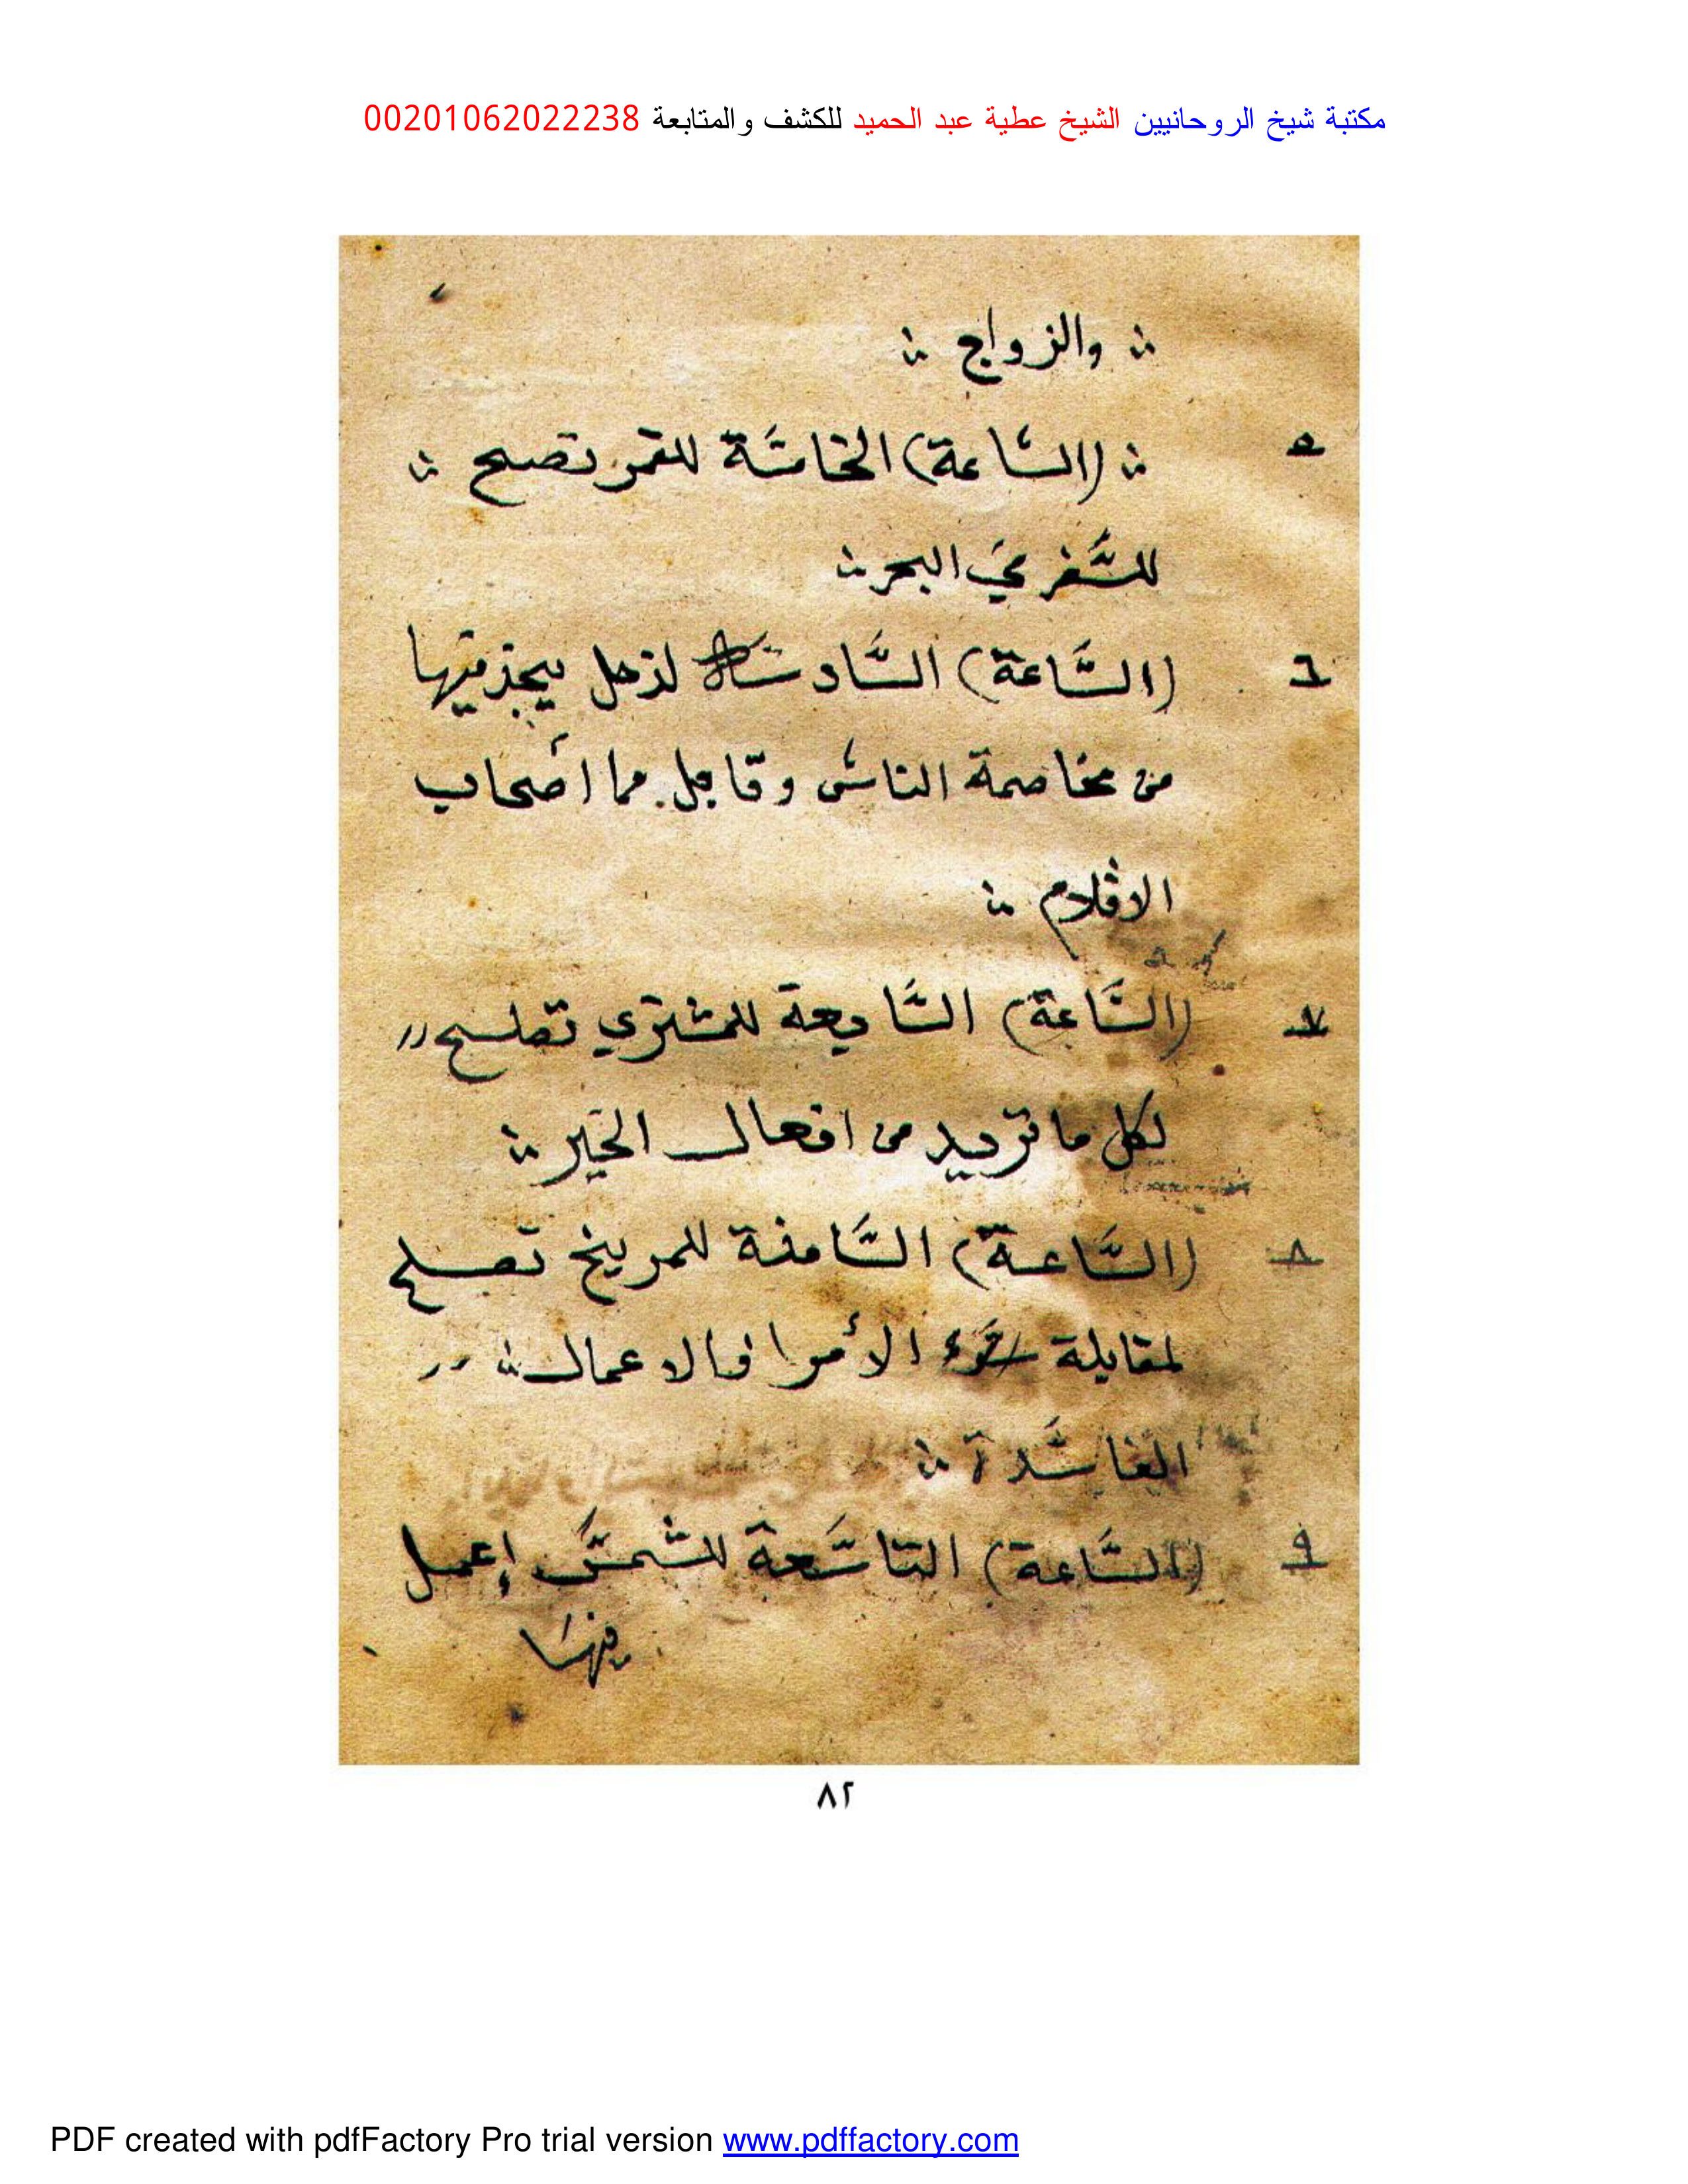 مكتبة شيخ الروحانيين الشيخ عطية عبد الحميد للكشف والمتابعة 00201062022238
والزواج
٥ (الساعة) الخامسة للقمر تصبح
للسَّفر في البحر
٦ (السَّاعة) السَّادسة لزحل يحذر فيها
من مخاصمة الناس و أصحاب
الاقلام
٧ (السَّاعة) السَّابعة للمشتري تصلح
لكل ما تريد من افعال الخَير
٨ (السَّاعة) الثَّامنة للمريخ تصلح
لمقابلة الأمرا والاعمال
الفاسَدة
٩ (السَّاعة) التاسَعة للشمس إعمل
فيها
٨٢
PDF created with pdfFactory Pro trial version www.pdffactory.com